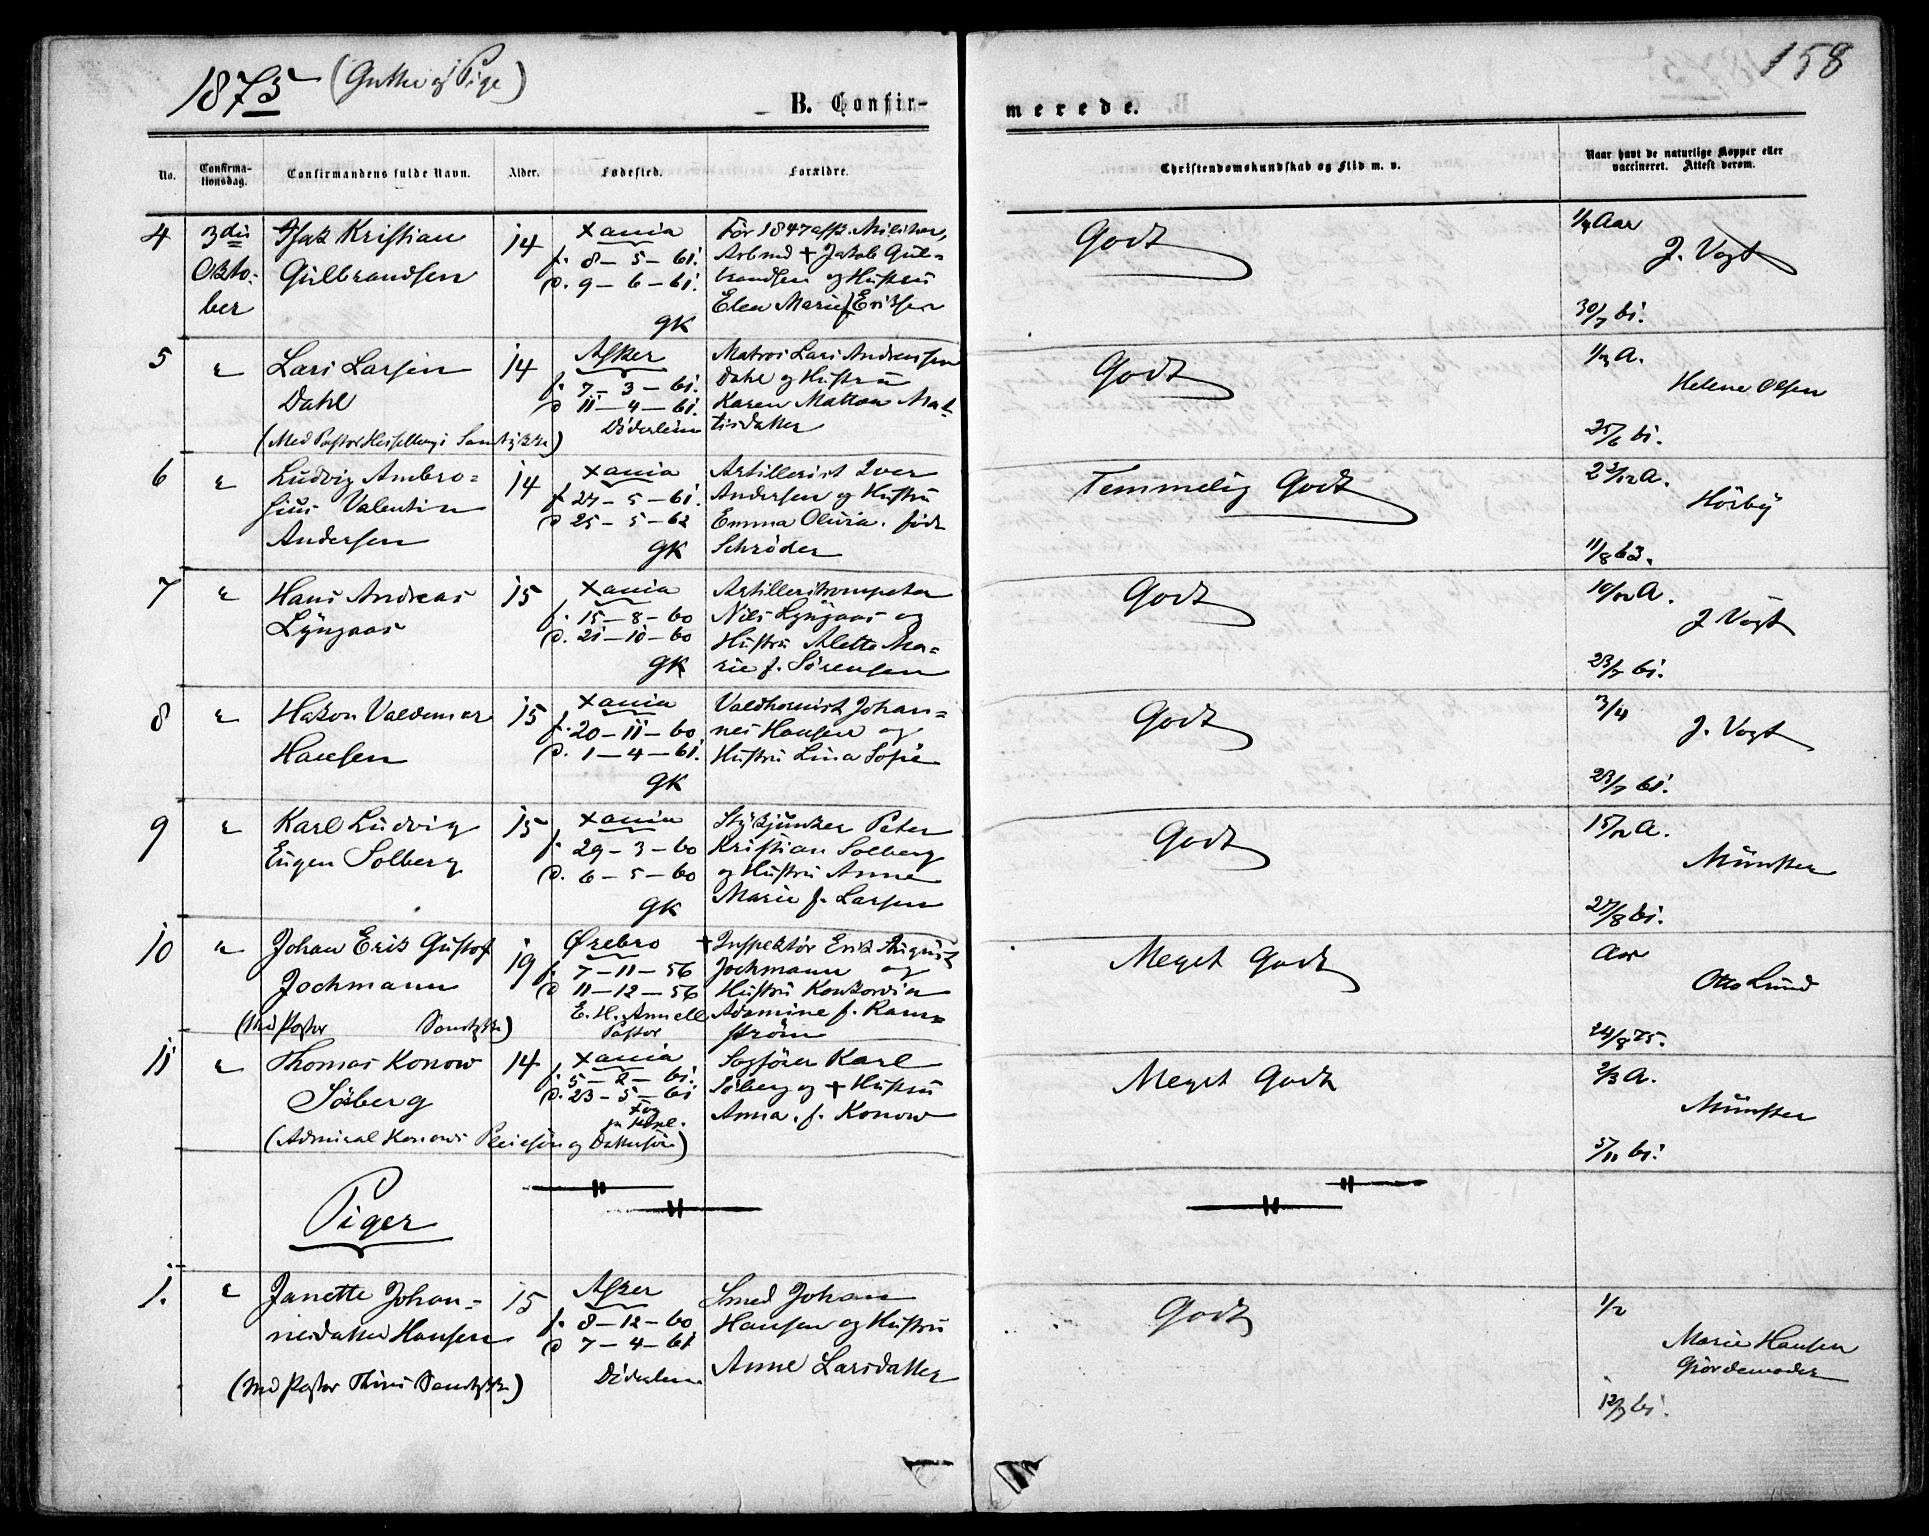 1875 (Gutter og Pige)
158
B. Confir-
merede.
No.
Confirma-
tionsdag.
Confirmandens fulde Navn.
Alder.
Fødested.
Forældre.
Christendomskundskab og Flid m. v.
Naar havt de naturlige Kopper eller
vaccineret. Attest derom.
4
3die
Okto-
ber
Isak Kristian
Gulbrandsen
14
Xania
f. 8 - 5 - 61.
d. 9 - 6 - 61.
GK
Før 1847 afsk. Militær,
Arbmd + Jakob Gul-
brandsen og Hustru
Elen Marie f. Eriksen
Godt
1/4 Aar
J. Vogt
30/7 61.
5
"
Lars Larsen
Dahl
(Med Pastor Hesselbergs Samtykke)
14
Asker
f. 7 - 3 - 61.
d 11 - 4 - 61.
Døderlein
Matros Lars Andreassen
Dahl og Hustru
Karen Mattea Mat-
tisdatter
Godt
1/4 A.
Helene Olsen
25/6 61.
6
"
Ludvig Ambro-
sius Valentin
Andersen
14
Xania
f 27 - 5 - 61.
d 25 - 5 - 62
GK
Artillerist Iver
Andersen og Hustru
Emma Olivia. født
Schrøder
Temmelig Godt
2 2/12 A.
Hörbÿ
11/8 63.
7
"
Hans Andreas
Lyngaas
15
Xania
f. 15 - 8 - 60
d. 21 - 10 - 60
GK
Artilleritrompeter
Nils Lyngaas og
Hustru Alette Ma-
rie f. Sørensen
Godt
10/12 A.
J Vogt
23/7 61.
8
"
Hakon Valdemar
Hansen
15
Xania
f. 20 - 11 - 60
d. 1 - 4 - 61.
GK
Valdhornist Johan-
nes Hansen og
Hustru Lina Sofie
Godt
3/4
J. Vogt
23/7 61.
9
"
Karl Ludvig
Eugen Solberg
15
Xania
f. 29 - 3 - 60
d. 6 - 5 - 60
GK
Stykjunker Peter
Kristian Solberg
og Hustru Anne
Marie f. Larsen
Godt
15/12 A.
Münster
27/8 61.
10
"
Johan Erik Gustof
Jochmann
(Med Pastor Samtykke)
19
Ørebro
f. 7 - 11 - 56
d 11 - 12 - 56
E. H. Annell
Pastor
+ Inspektør Erik August
Jochmann og
Hustru Konkordia
Adamine f. Ram-
strøm
Meget Godt
Aar
Otto Lund
24/8 75.
11
"
Thomas Konow
Söberg
(Admiral Konows Pleiesön og Dattersön)
14
Xania
f. 5 - 2 - 61.
d. 23 - 5 - 61
Sagfører Karl
Söberg og + Hustru
Anna. f. Konow
Meget Godt
2/3 A.
Münster
5/11 61.
Piger
1.
"
Janette Johan-
nesdatter Hansen
(Med Pastor Samtykke)
15
Asker
f. 8 - 12 - 60
d 7 - 4 - 61
Döderlein
Smed Johan
Hansen og Hustru
Anne Larsdatter
Godt
1/2
Marie Hansen
Gjördemoder
12/7 61.